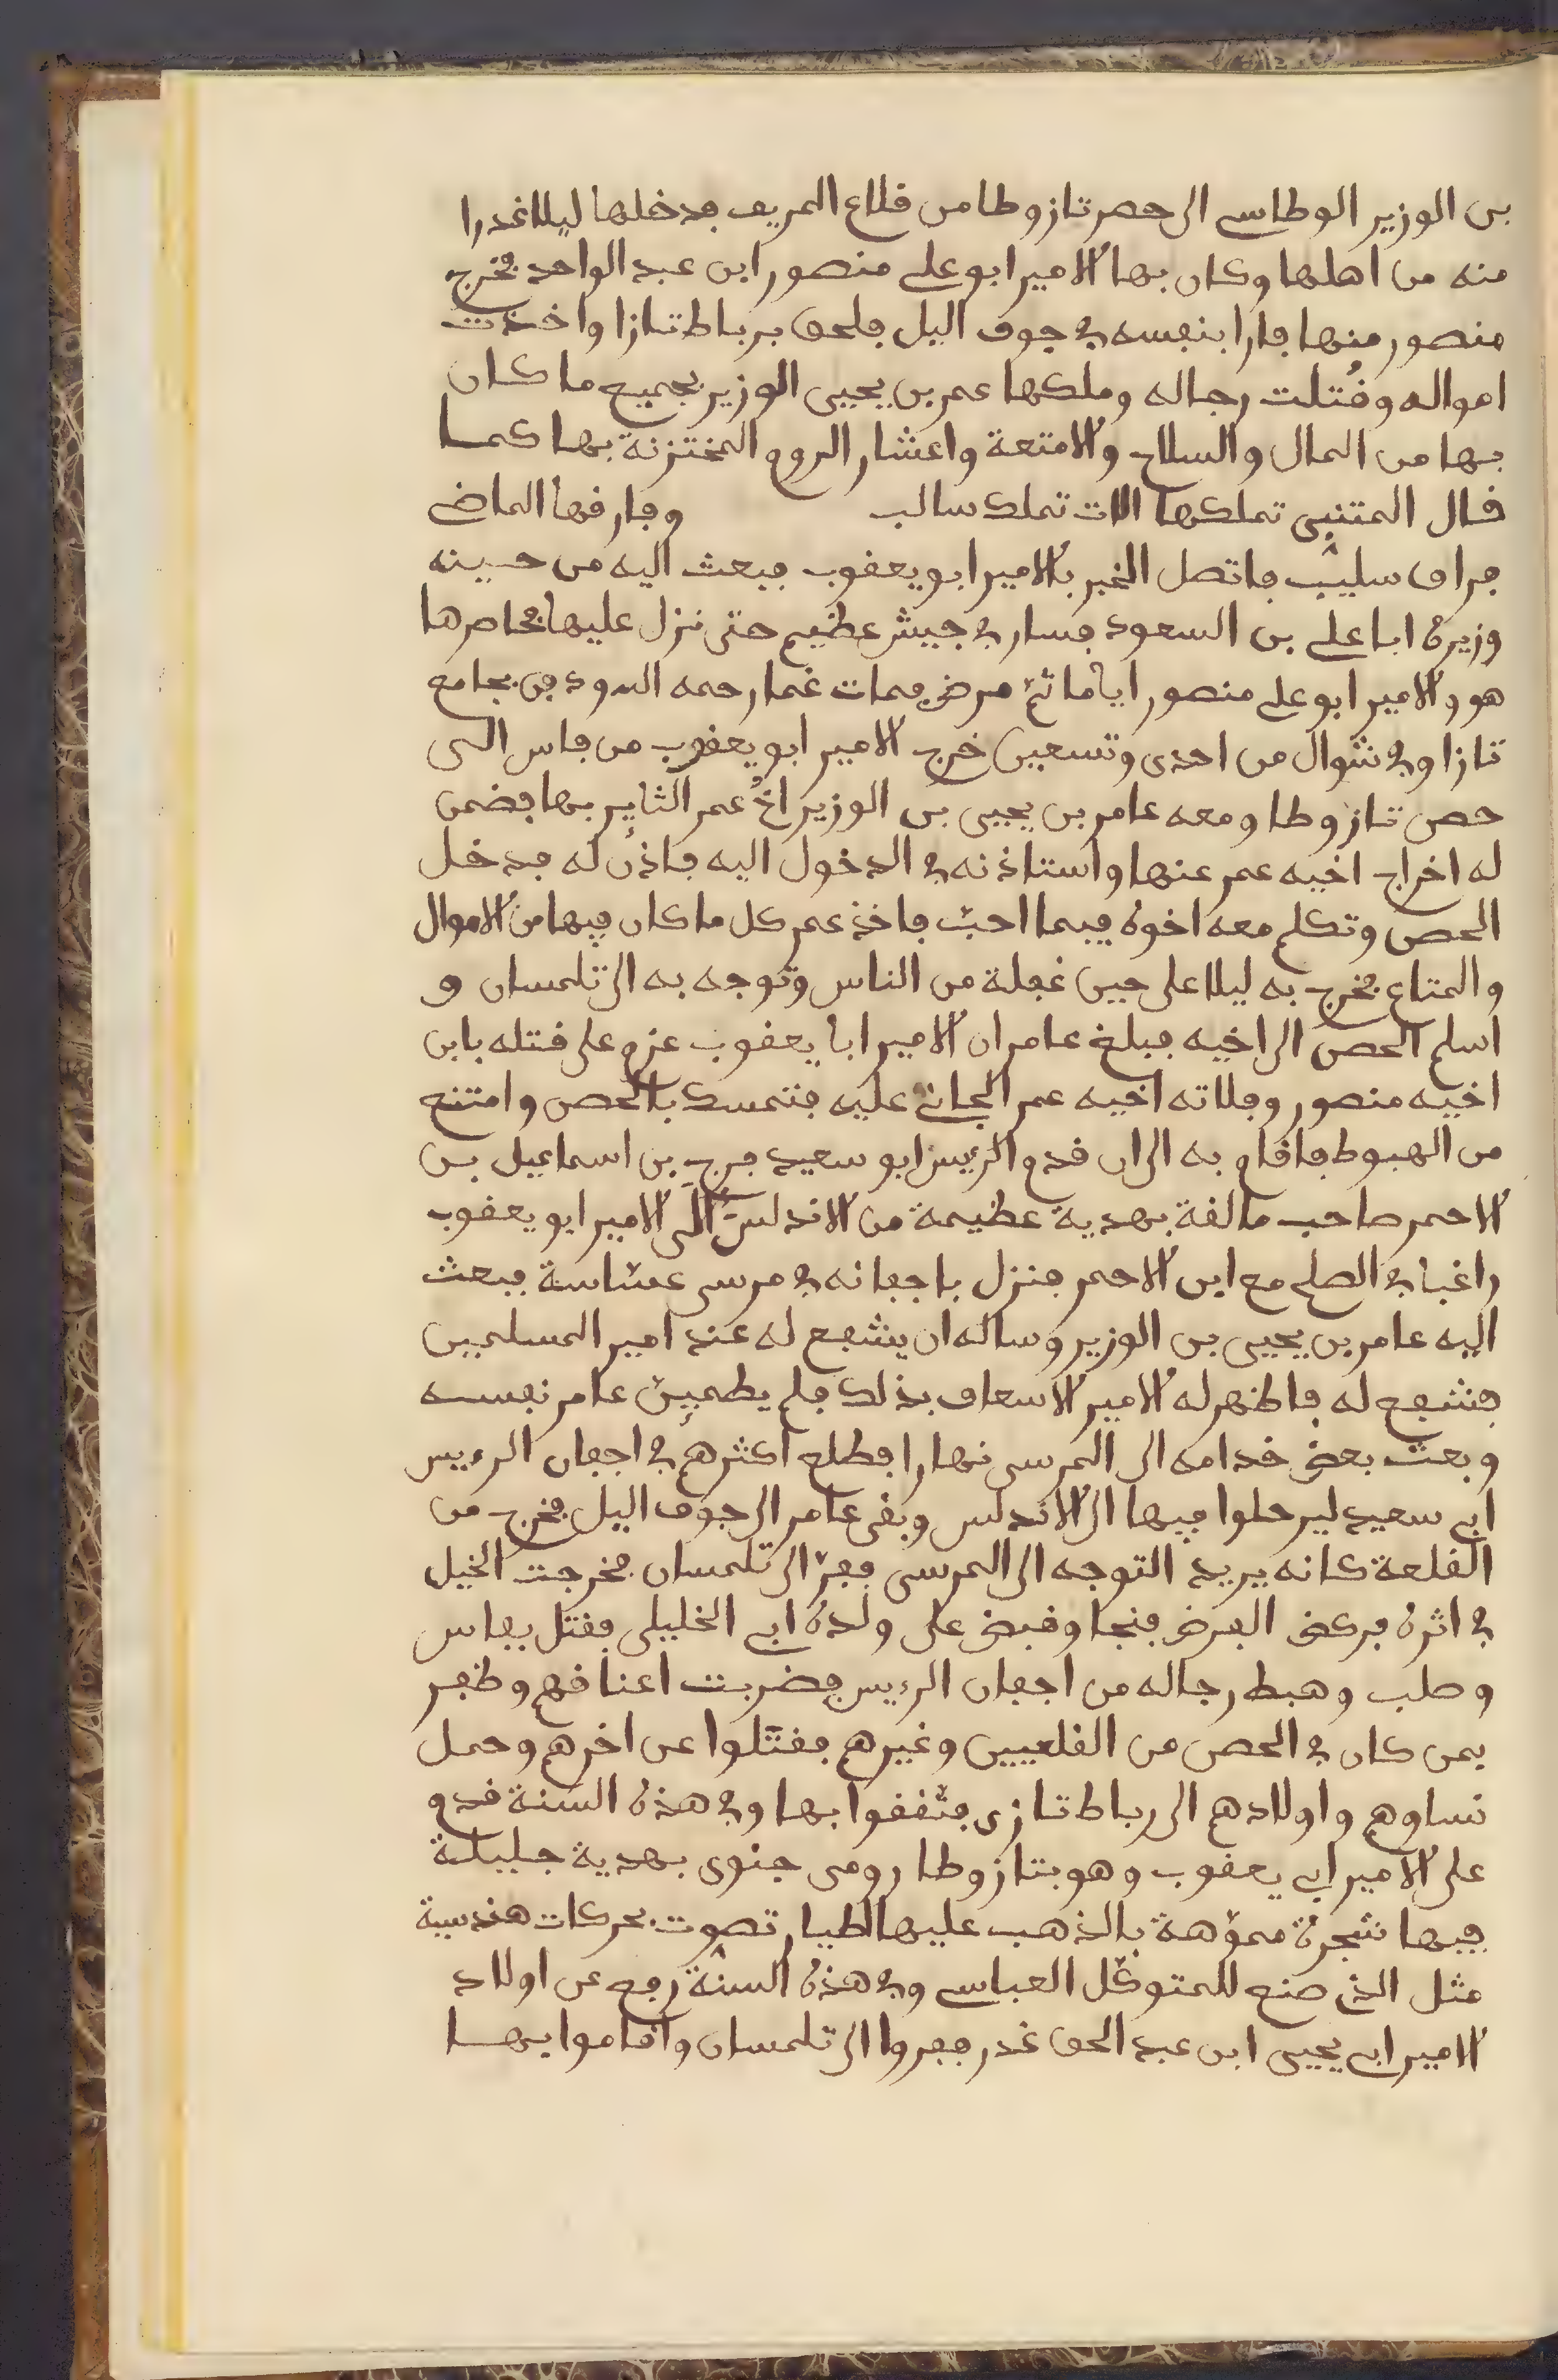 بن الوزير الوطاسي الى حصن تازوطا من قلاع الريف فدخلها ليلا غدرا
منه من اهلها وكان بها الامير ابو علي منصور ابن عبد الواحد فخرج
منصور منها فارا بنفسه في جوف اليل فلحق برباط تازا واخذت
امواله وقُتلت رجاله وملكها عمر بن يحيى الوزير بجميع ما كان
بها من المال والسلاح والامتعة واعشار الروم المختزنة بها كما
قال المتنبي تملكها الات تملك سالب وفارقها الماضي
فراق سليب فاتصل الخبر بالامير ابو يعقوب فبعث اليه من حسينه
وزيره ابا علي بن السعود فسار في جيش عظيم حتى نزل عليها فحاصرها
هو والامير ابو علي منصور اياما ثم مرض فمات غما رحمه الله ودفن بجامع
تازا وفي شوال من احدى وتسعين خرج الامير ابو يعقوب من فاس الى
حصن تازوطا ومعه عامر بن يحيى بن الوزير اخُ عمر الثاير بها فضمن
له اخراج اخيه عمر عنها واستاذنه في الدخول اليه فاذن له فدخل
الحصن وتكلم معه اخوه فيما احبّ فاخذ عمر كل ما كان فيها من الاموال
والمتاع فخرج به ليلا على حين غفلة من الناس وتوجه به الى تلمسان و
اسلم الحصن الى اخيه فبلغ عامر ان الامير ابا يعقوب عزم على قتله بابن
اخيه منصور وفلاته اخيه عمر الجاني عليه فتمسك بالحصن وامتنع
من الهبوط فاقام به الى ان قدم الرئيس ابو سعيد فرج بن اسماعيل بن
الاحمر صاحب مالقة بهدية عظيمة من الاندلس الى الامير ابو يعقوب
راغبا في الصلح مع ابن الاحمر فنزل باجفانه في مرسى عساسة فبعث
اليه عامر بن يحيى بن الوزير وساله ان يشفع له عند امير المسلمين
فشفع له فاظهر له الامير الاسعاف بذلك فلم يطمين عامر نفسه
وبعث بعض خدامه الى المرسى نهارا فطلع اكثرهم في اجفان الرءيس
ابي سعيد ليرحلوا فيها الى الاندلس وبقي عامر الى جوف اليل فخرج من
القلعة كانه يريد التوجه الى المرسى ففرّ الى تلمسان فخرجت الخيل
في اثره فركض الفرض فنجا وقبض على ولده ابي الخليلي فقتل بفاس
وصلب وهبط رجاله من اجفان الرءيس فضربت اعناقهم وظفر
بمن كان في الحصن من القلعيين وغيرهم فقتّلوا عن اخرهم وحمل
نساوهم واولادهم الى رباط تازى فثقفوا بها وفي هذه السنة قدم
على الامير ابي يعقوب وهو بتازوطا رومى جنوى بهدية جليلة
فيها شجرة مموّهة بالذهب عليها اطيار تصوت بحركات هندسية
مثل الذي صنع للمتوكّل العباسي وفي هذه السنة رفع عن اولاد
الامير ابي يحيى ابن عبد الحق غدر ففروا الى تلمسان واقاموا بها